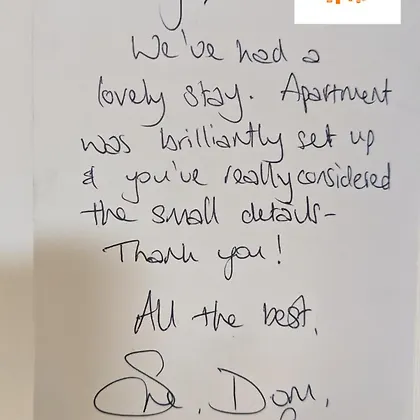 We've had a
lovely stay. Apartment
was brilliantly set up
& you've really considered
the small details -
Thank you!
All the best,